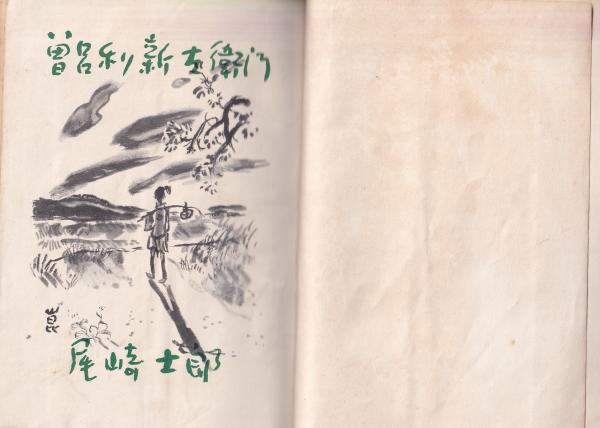 曽呂利新左衛门
崑
尾崎士郎